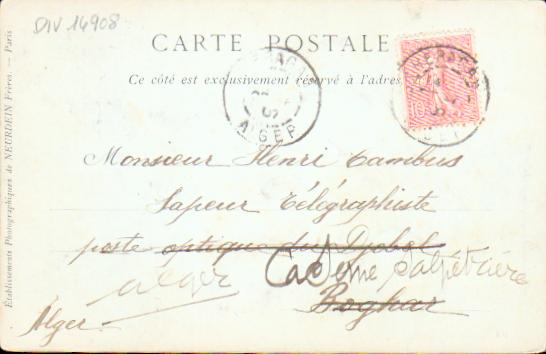 DIV 14908
CARTE POSTALE
Ce côté est exclusivement réservé à l'adresse
Etablissements Photographiques de NEURDEIN Frères. — Paris
ALGER
10
Monsieur Henri Cambus
Sapeur Télégraphiste
poste optique du Djebel
Alger Caserne Salpêtrière
Boghar
Alger